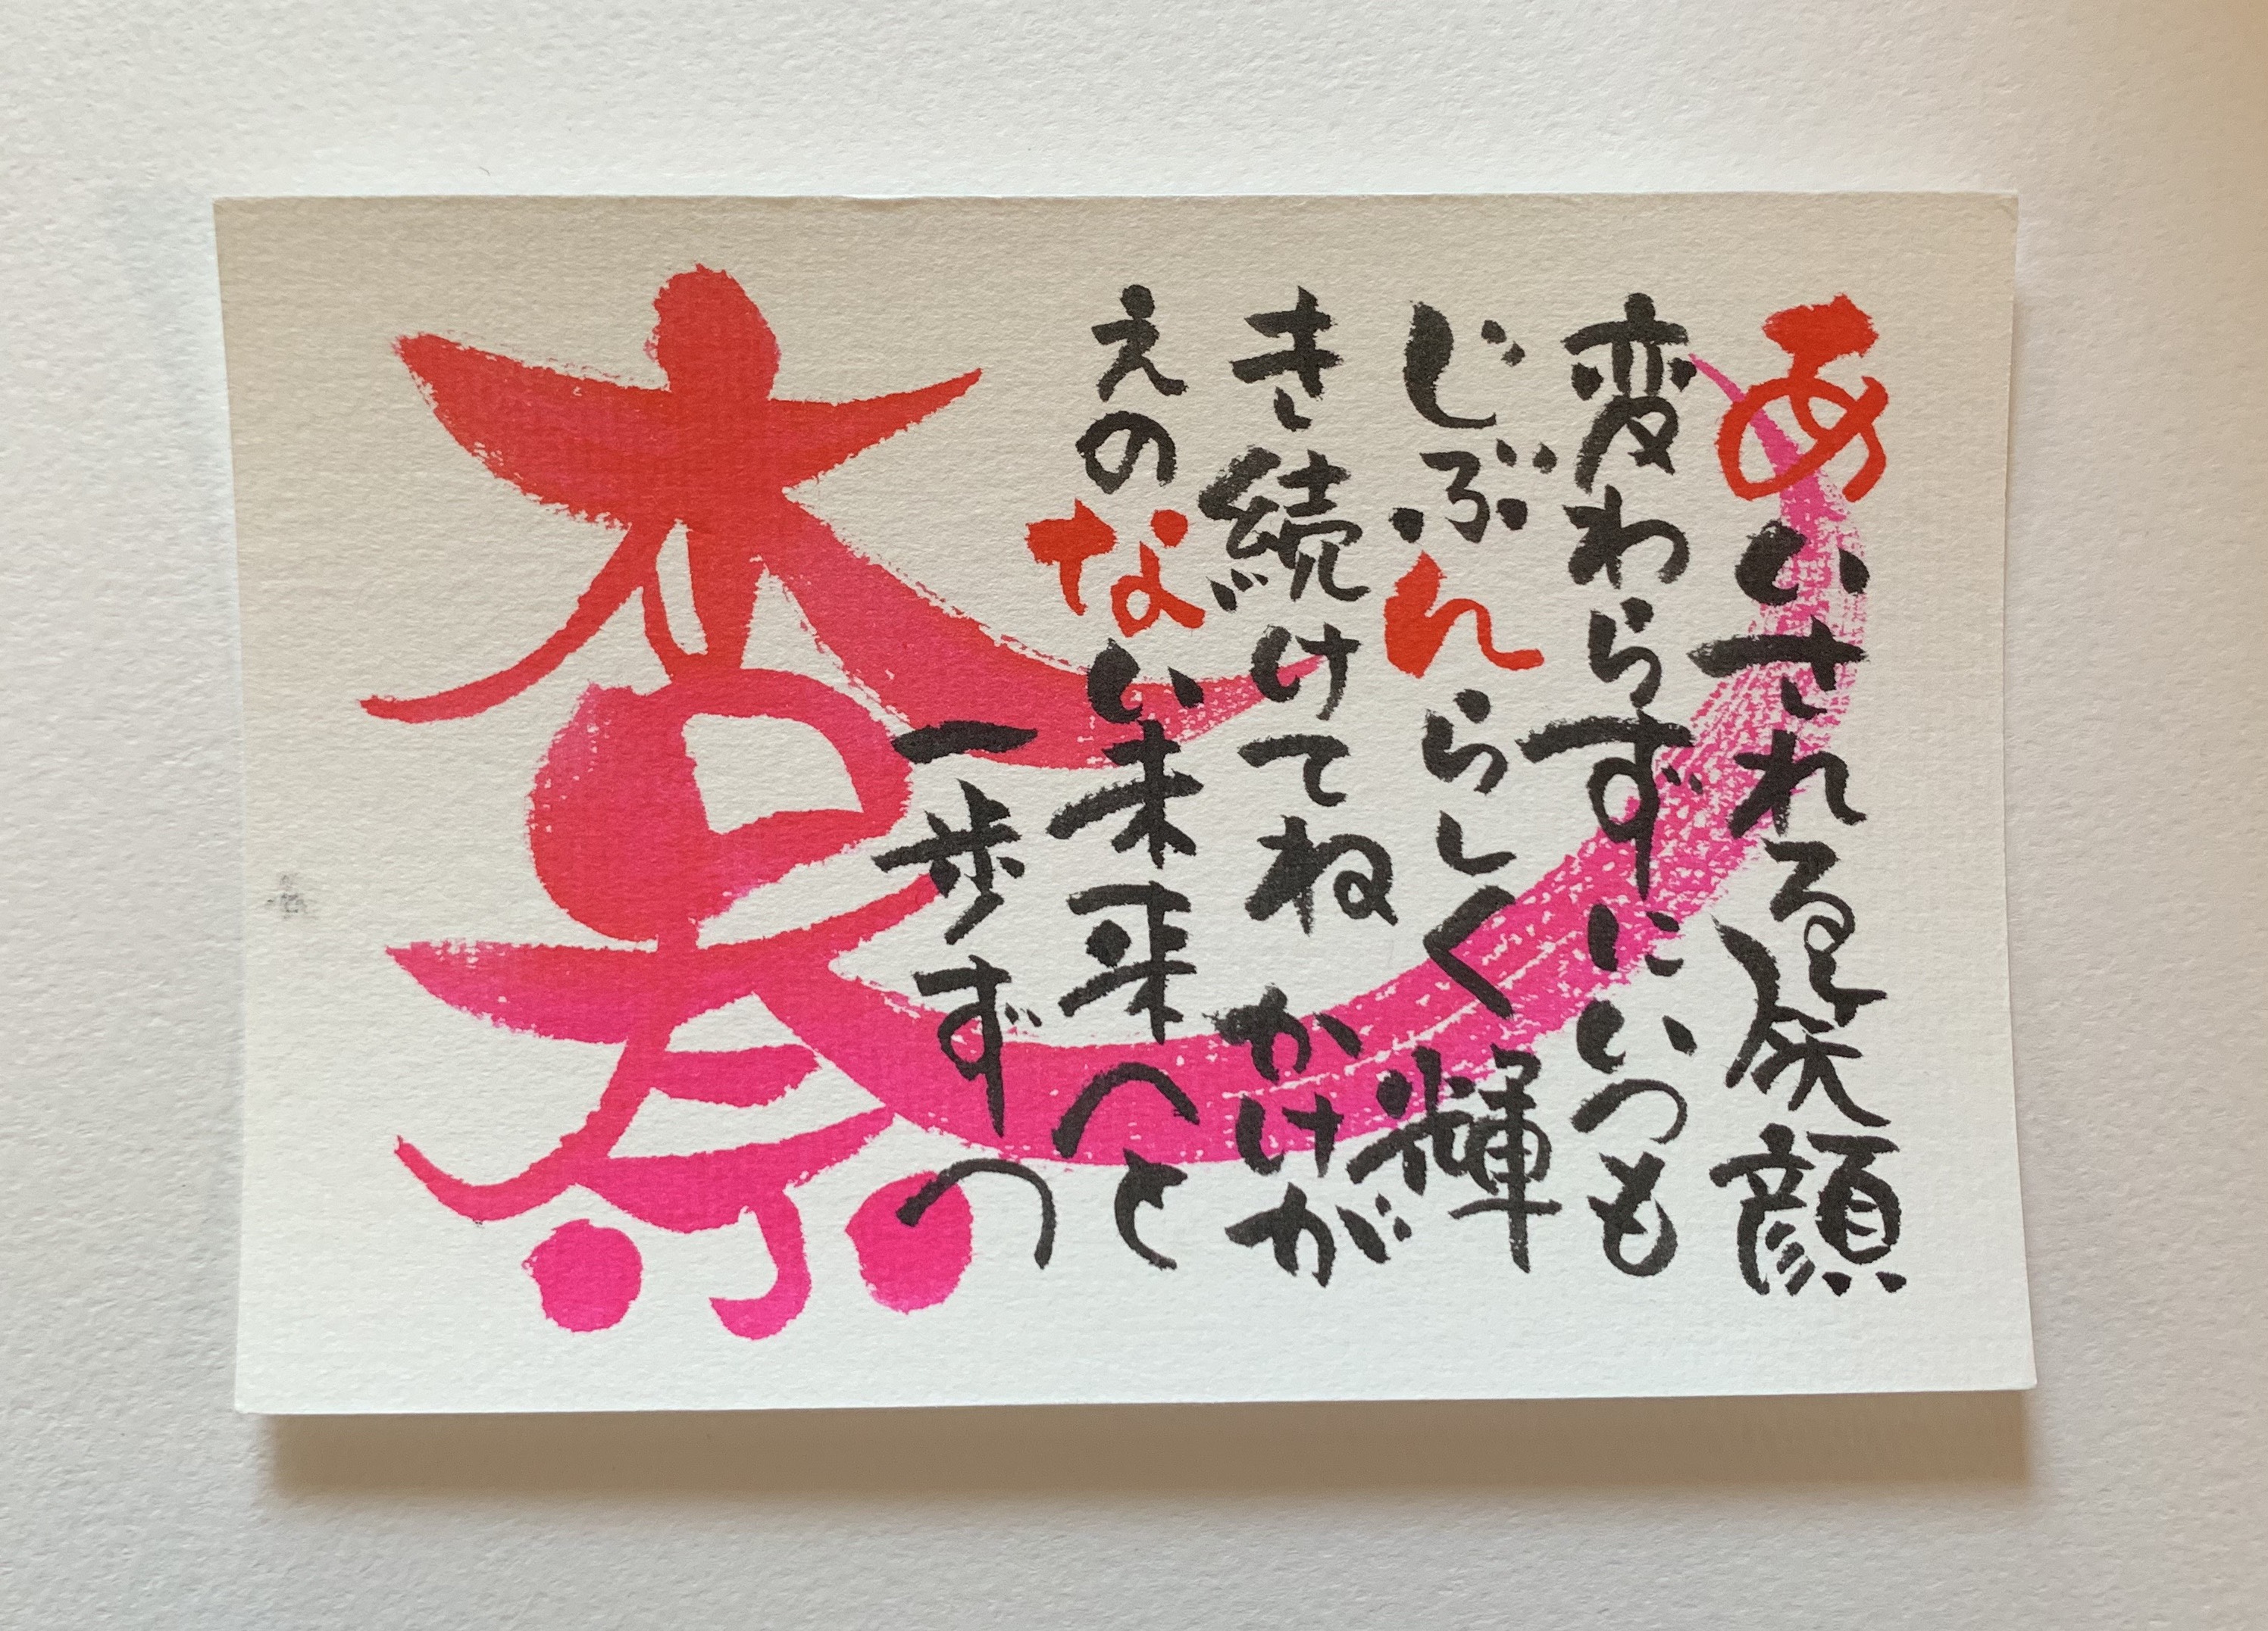 あいされる笑顔
変わらずにいつも
じぶんらしく輝
き続けてね かけが
えのない未来へと
一歩ずつ
杏奈